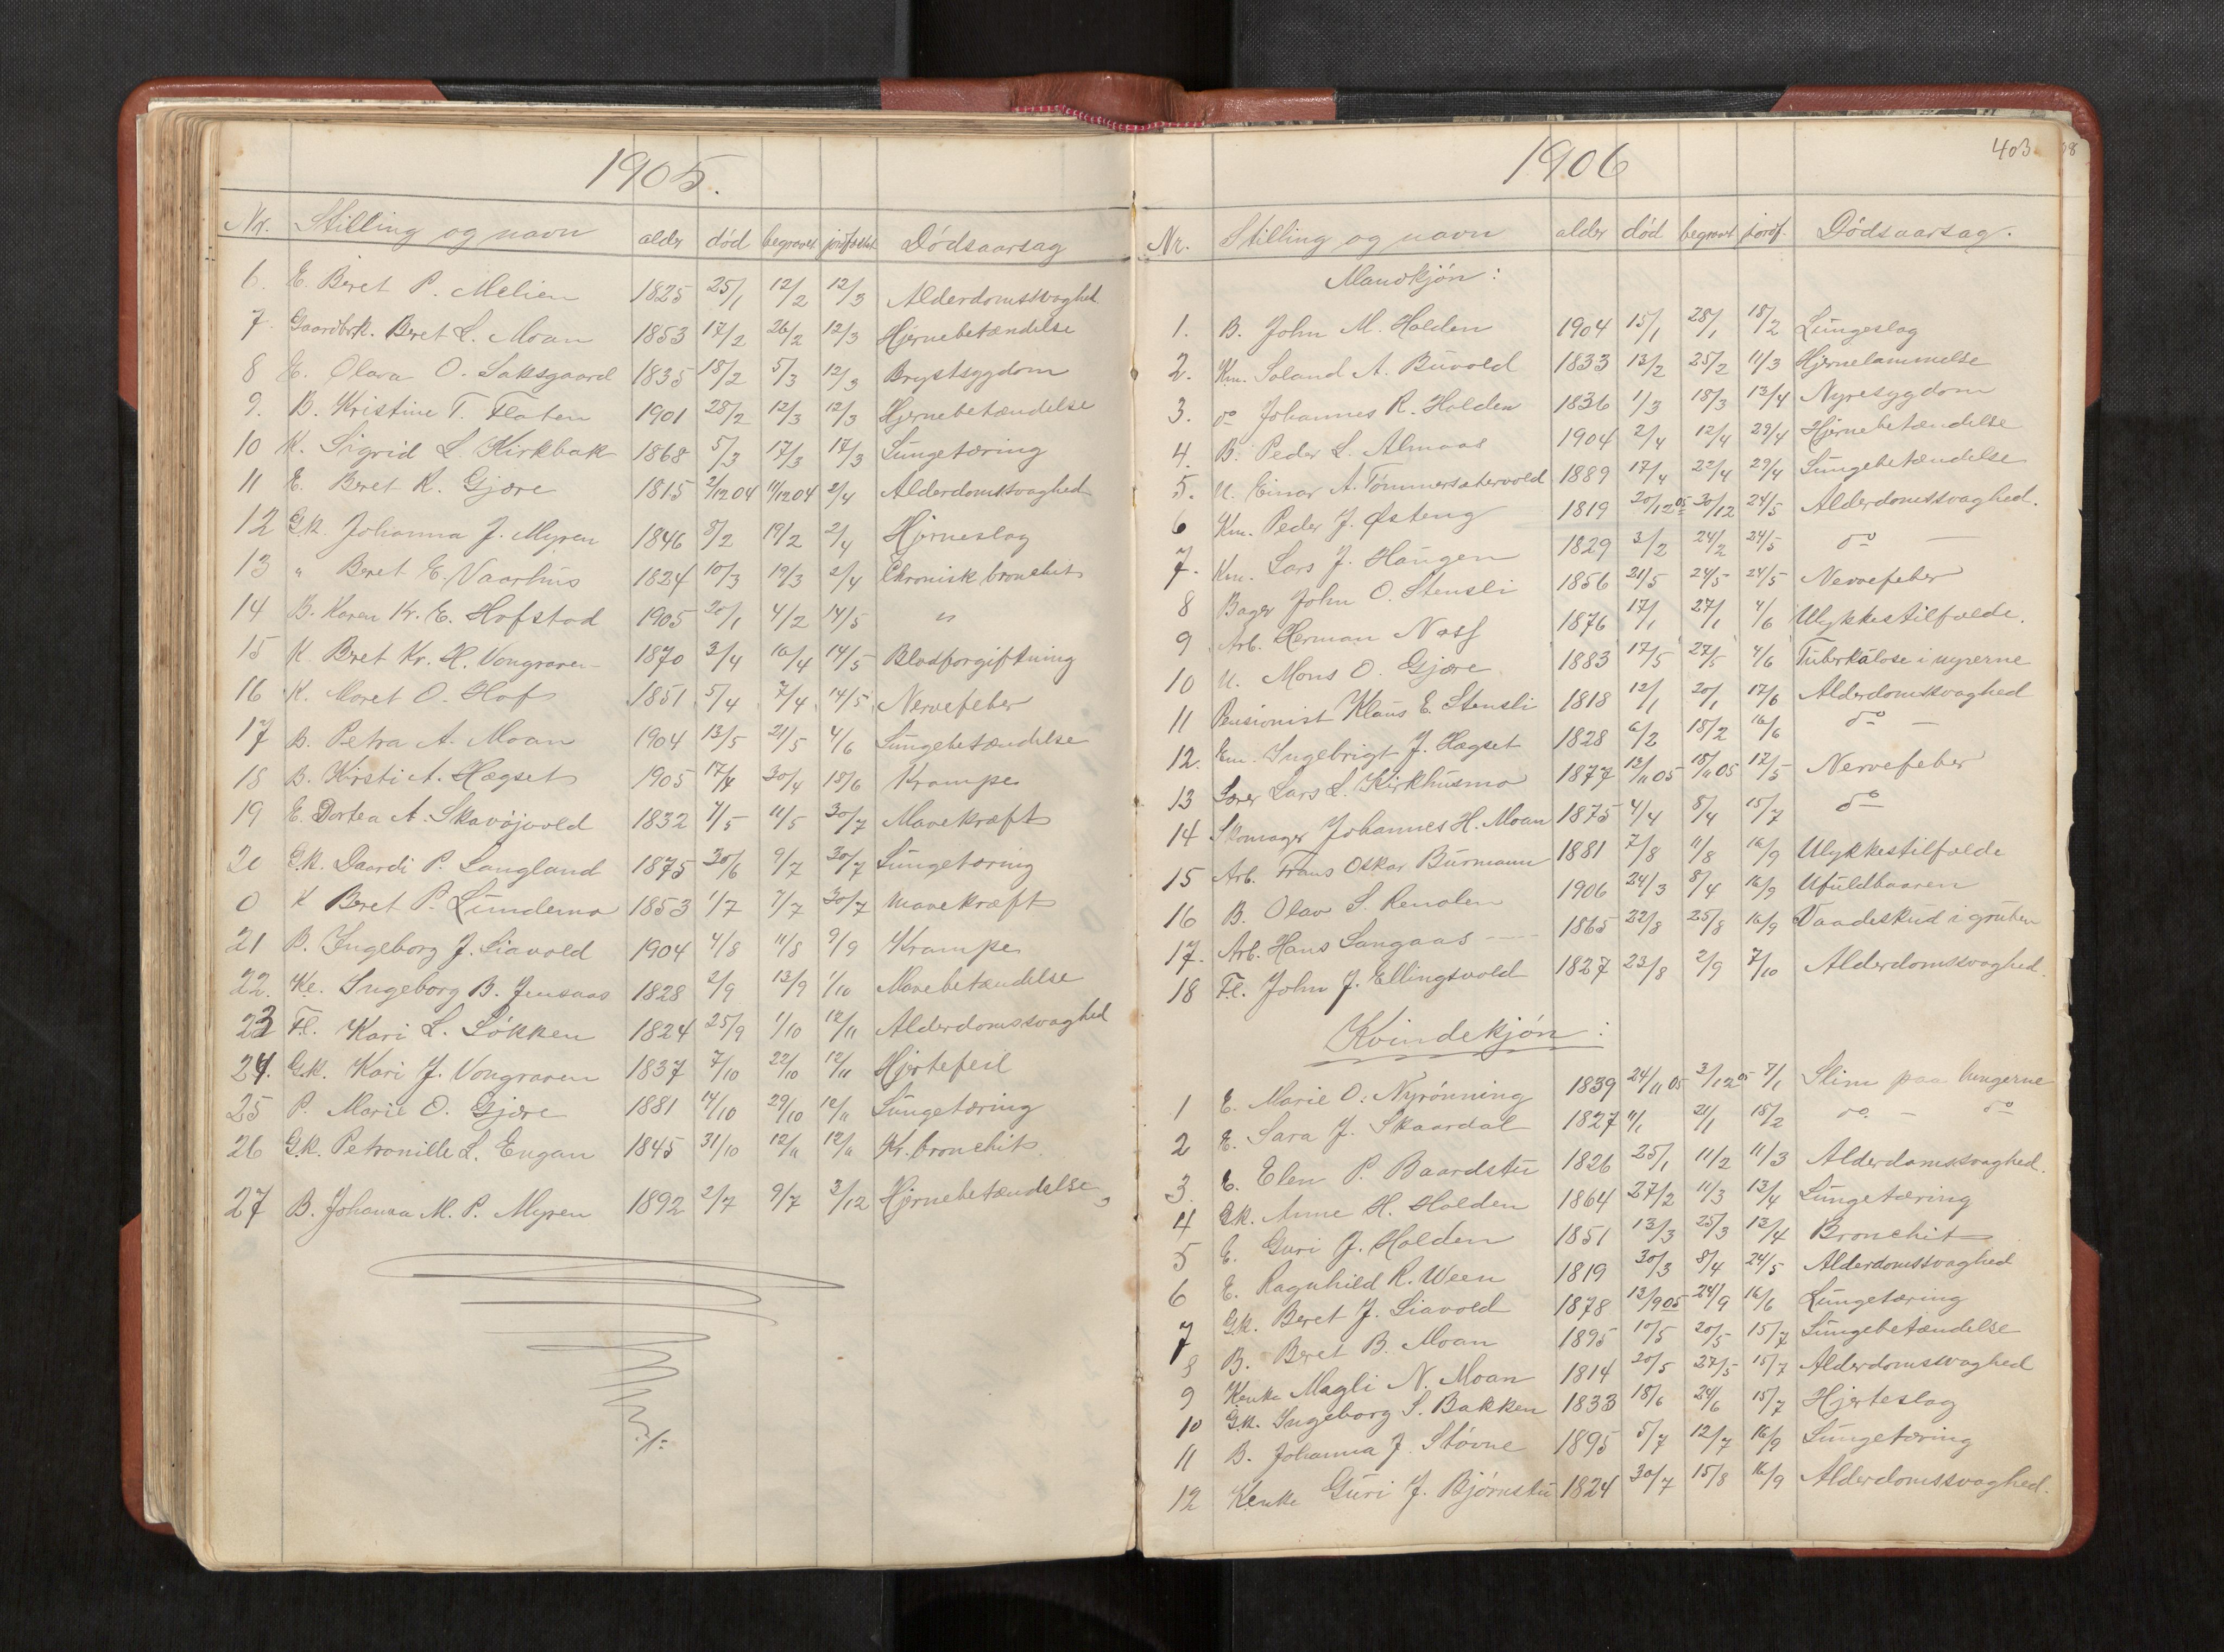 1905.
Nr. Stilling og navn alder død begravet jordfæstet Dödsaarsag
6. E. Beret P. Melien 1825 25/1 12/2 12/3 Alderdomssvaghed
7. Gaardbrk. Beret L. Moan 1853 17/2 26/2 12/3 Hjernebetændelse
8 E. Olava O. Saksgaard 1835 18/2 5/3 12/3 Brystsygdom
9. B. Kristine T. Flaten 1901 28/2 12/3 12/3 Hjernebetændelse
10 K. Sigrid L. Kirkbak 1868 5/3 17/3 17/3 Lungetæring
11 E. Beret K. Gjære 1815 2/12 04 11/12 04 2/4 Alderdomssvaghed
12 Gk. Johanna J. Myren 1846 8/2 19/2 2/4 Hjerneslag
13 " Beret E. Vaarhus 1824 10/3 19/3 2/4 Chronisk bronchit
14 B. Karen Kr. E. Hofstad 1905 20/1 4/2 14/5 "
15 K. Beret Kr. H. Vongraven 1870 3/4 16/4 14/5 Blodforgiftning
16 K. Maret O. Hof 1851 5/4 7/4 14/5 Nervefeber
17 B. Petra A. Moan 1904 13/5 21/5 4/6 Lungebetændelse
18 B. Kirsti A. Hægset 1905 17/4 30/4 18/6 Krampe
19 E. Dortea A. Skavøjvold 1832 1/5 11/5 30/7 Mavekræft
20 Gk. Daardi P. Langland 1875 30/6 9/7 30/7 Lungetæring
0 K Beret P. Lundemo 1853 1/7 7/7 30/7 Mavekræft
21 B. Ingeborg J. Liavold 1904 4/8 11/8 9/9 Krampe
22. Ke. Ingeborg B. Jensaas 1828 2/9 13/9 1/10 Mavebetændelse
23 Fl. Kari L. Lökken 1824 25/9 1/10 12/11 Alderdomssvaghed
24. Gk. Kari J. Vongraven 1837 7/10 22/10 12/11 Hjertefeil
25 P. Marie O. Gjære 1881 14/10 29/10 12/11 Lungetæring
26 Gk. Petronille L. Engan 1845 31/10 12/11 12/11 Kr. bronchit
27 B. Johanna M. P. Myren 1892 2/7 9/7 3/12 Hjernebetændelse
403
1906
Nr. Stilling og navn alder död begravet jordf. Dödsaarsag.
Mandkjön:
1. B. John M. Holden 1904 15/1 28/1 18/2 Lungeslag
2. Km. Soland A. Buvold 1833 13/2 25/2 11/3 Hjernelammelse
3. do Johannes R. Holden 1836 1/3 18/3 13/4 Nyresygdom
4. B. Peder L. Almaas 1904 2/4 12/4 29/4 Hjernebetændelse
5. U. Einar A. Tømmersætervold 1889 17/4 22/4 29/4 Lungebetændelse
6 Km. Peder J. Østeng 1819 20/12 05 30/12 24/5 Alderdomssvaghed.
7. Km. Lars J. Haugen 1829 3/2 24/2 24/5 do —
8 Bager John O. Stensli 1856 21/5 24/5 24/5 Nervefeber
9 Arb. Herman Næss 1876 17/1 27/1 4/6 Ulykkestilfælde.
10 U. Mons O. Gjære 1883 17/5 27/5 4/6 Tuberkulose i nyrerne
11 Pensionist Klaus E. Stensli 1818 12/1 20/1 17/6 Alderdomssvaghed
12. Em. Ingebrigt J. Hægset 1828 6/2 18/2 16/6 do —
13 Lærer Lars L. Kirkhusmo 1877 12/11 05 18/11 05 12/5 Nervefeber
14 Skomager Johannes H. Moan 1875 4/4 8/4 15/7 do
15 Arb. Frans Oskar Burmann 1881 7/8 11/8 16/9 Ulykkestilfælde
16 B. Olav S. Renolen 1906 24/3 8/4 16/9 Ufuldbaaren
17. Arb. Hans Langaas 1865 22/8 25/8 16/9 Vaadeskud i gruben
18 Fl. John J. Ellingsvold 1827 23/8 2/9 7/10 Alderdomssvaghed.
Kvindekjön:
1 E. Marie O. Nyrönning 1839 24/11 05 3/12 05 7/1 Slim paa lungerne
2 E. Sara J. Skaardal 1827 11/1 21/1 18/2 do. — do
3. E. Elen P. Baardstu 1826 25/1 11/2 11/3 Alderdomssvaghed.
4 Gk. Anne H. Holden 1864 27/2 11/3 13/4 Lungetæring
5 E. Guri J. Holden 1851 13/3 25/3 13/4 Bronchit
6 E. Ragnhild R. Ween 1819 30/3 8/4 24/5 Alderdomssvaghed
7 Gk. Beret J. Liavold 1878 13/9 05 24/9 16/6 Lungetæring
8 B. Beret B. Moan 1895 10/5 20/5 15/7 Lungebetændelse
9 Kenke Magli N. Moan 1814 20/5 27/5 15/7 Alderdomssvaghed
10 Gk. Ingeborg S. Bakken 1833 18/6 24/6 15/7 Hjerteslag
11 B. Johanna J. Støvne 1895 5/7 12/7 16/9 Lungetæring
12 Kenke Guri J. Bjørnstu 1824 30/7 15/8 16/9 Alderdomssvaghed.